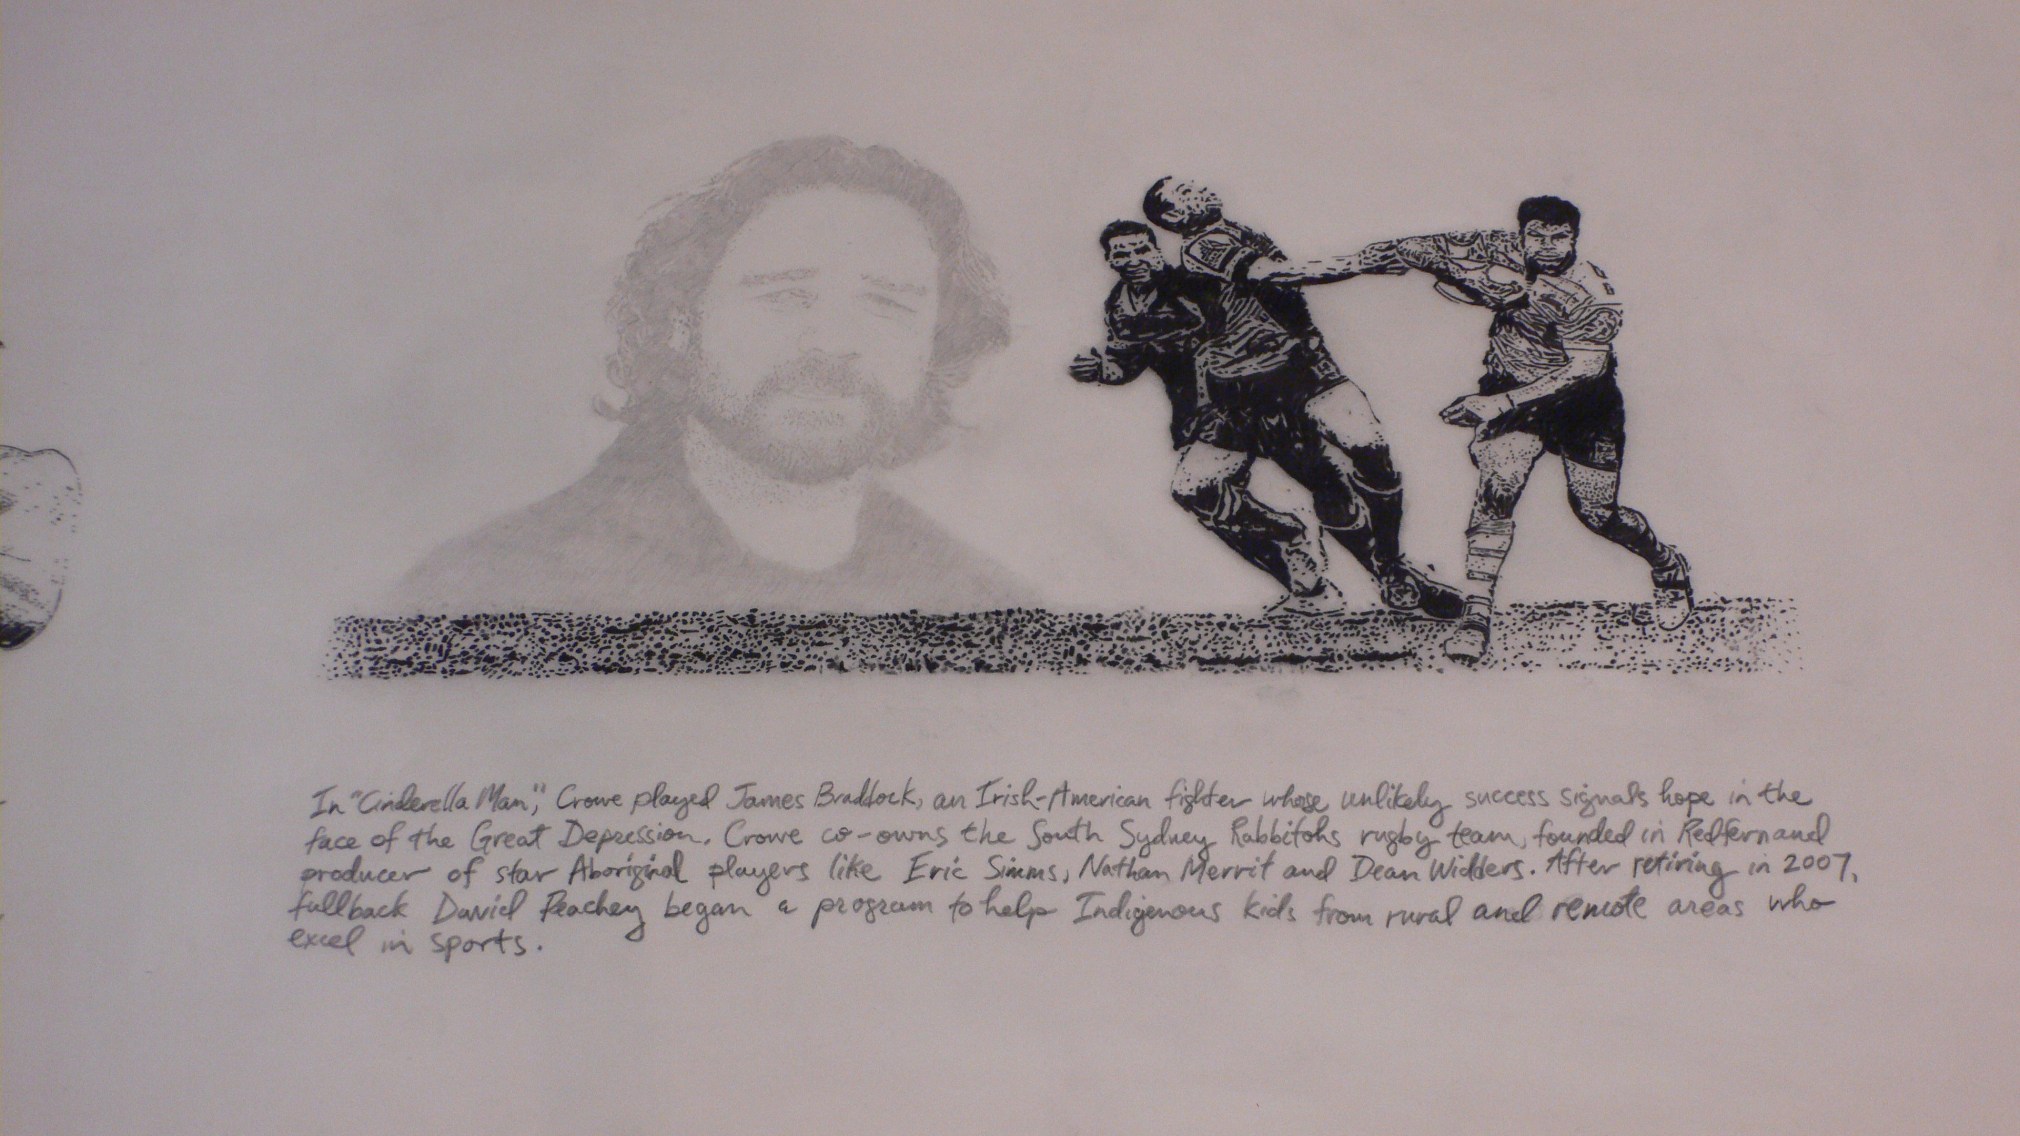 In "Cinderella Man," Crowe played James Braddock, an Irish-American fighter whose unlikely success signals hope in the
face of the Great Depression. Crowe co-owns the South Sydney Rabbitohs rugby team, founded in Redfern and
producer of star Aboriginal players like Eric Simms, Nathan Merrit and Dean Widders. After retiring in 2007,
fullback David Peachey began a program to help Indigenous kids from rural and remote areas who
excel in sports.